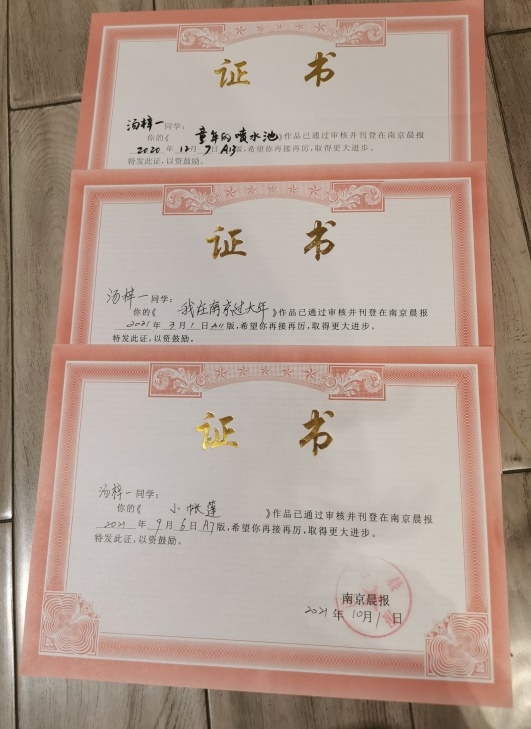 证 书
汤梓一同学：
你的《童年的喷水池》作品已通过审核并刊登在南京晨报
2020年12月7日A13版，希望你再接再厉，取得更大进步。
特发此证，以资鼓励。
证 书
汤梓一同学：
你的《我在南京过大年》作品已通过审核并刊登在南京晨报
2021年3月1日A11版，希望你再接再厉，取得更大进步。
特发此证，以资鼓励。
证 书
汤梓一同学：
你的《小帐篷》作品已通过审核并刊登在南京晨报
2021年9月6日A7版，希望你再接再厉，取得更大进步。
特发此证，以资鼓励。
南京晨报
2021年10月1日